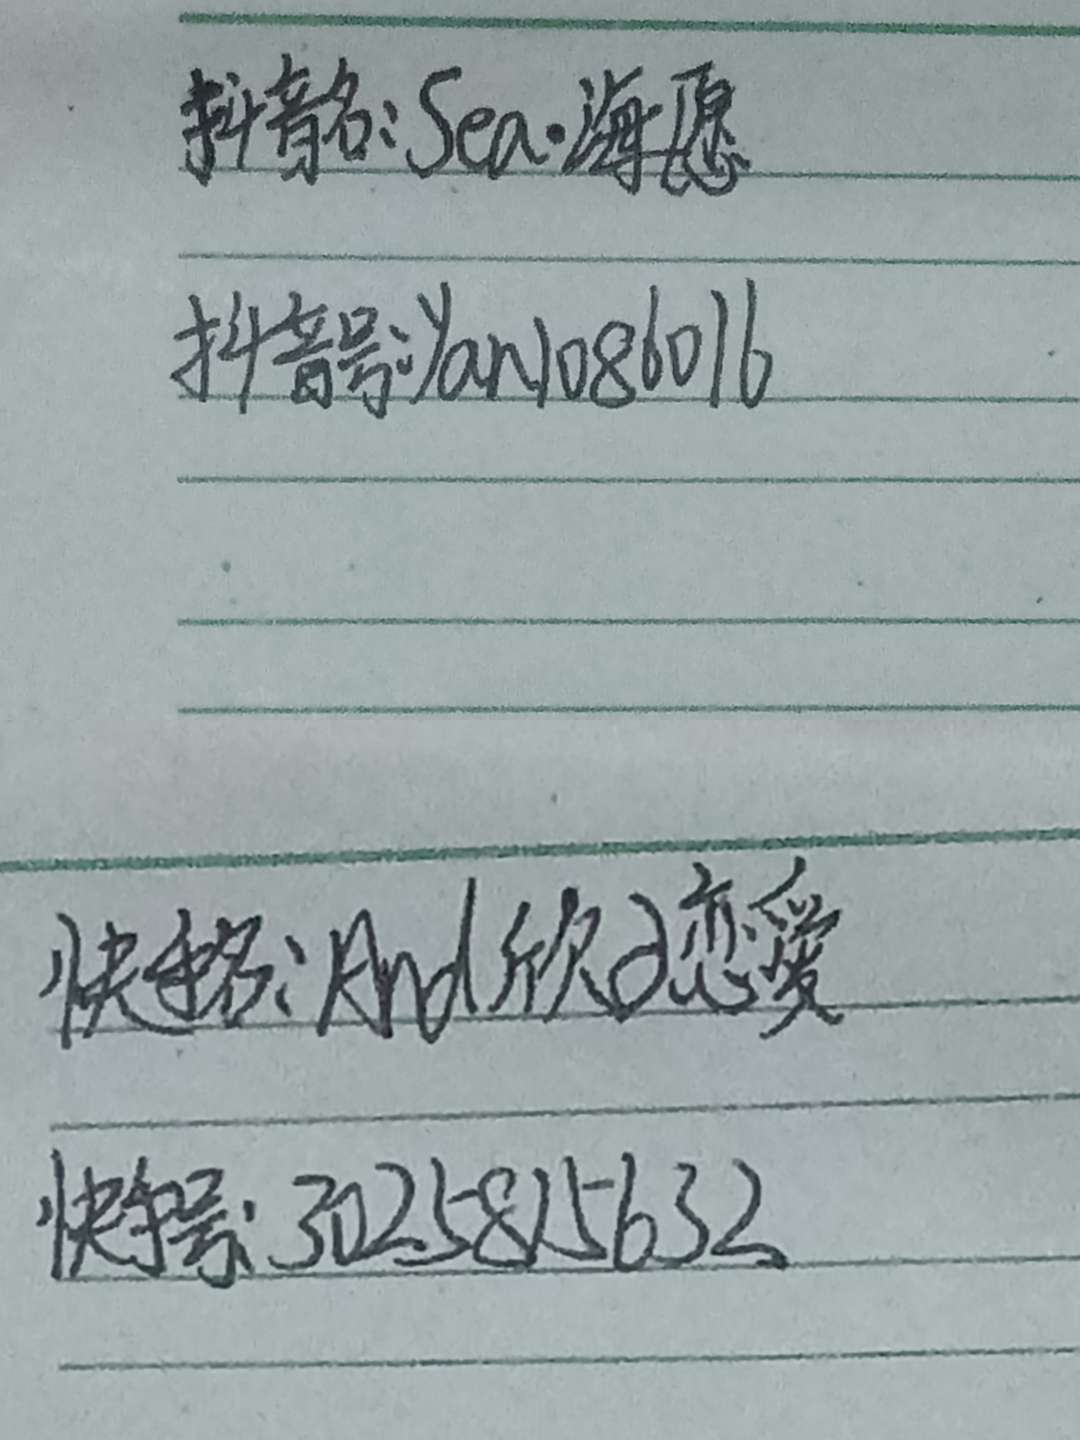 抖音名:Sea·海愿
抖音号:Yan1086016
快手名:And欣d恋爱
快手号:3025815632